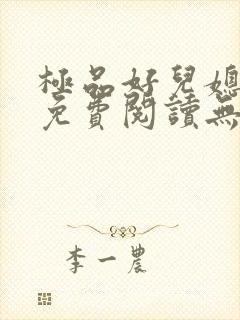 極品好兒媳
免費閱讀無
李一農